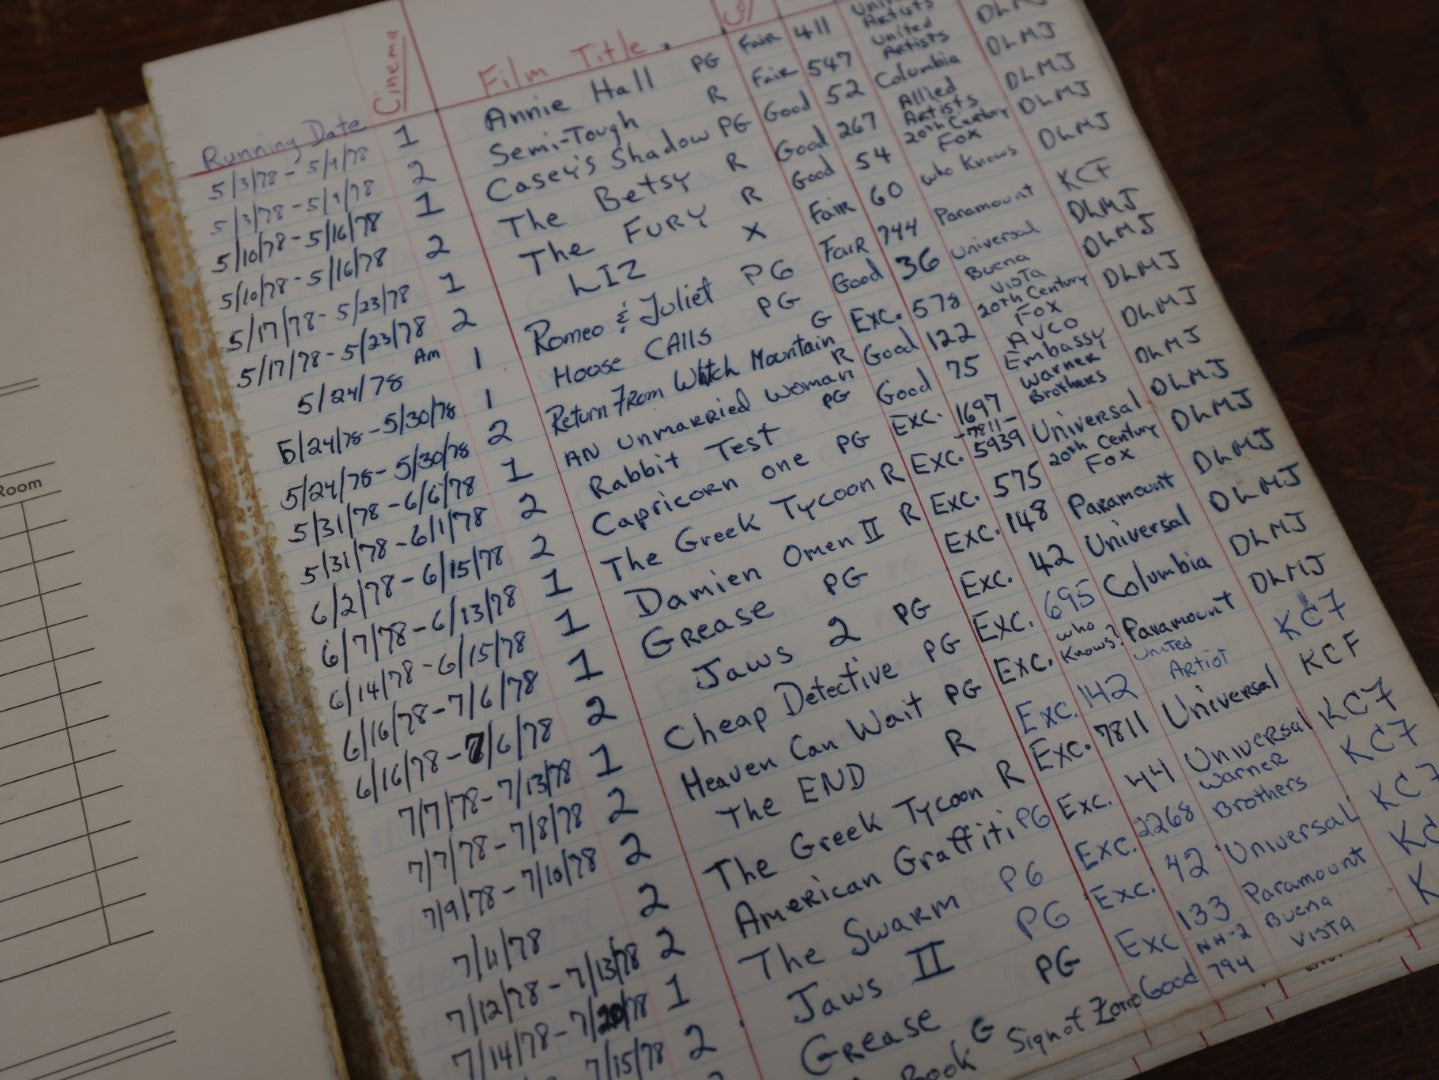 Room
Running Date Cinema Film Title
5/3/78 - 5/9/78 1 Annie Hall PG Fair 411 United Artists DLMJ
5/3/78 - 5/9/78 2 Semi-Tough R Fair 547 United Artists DLMJ
5/10/78 - 5/16/78 1 Casey's Shadow PG Good 52 Columbia DLMJ
5/10/78 - 5/16/78 2 The Betsy R Good 267 Allied Artists DLMJ
5/17/78 - 5/23/78 1 The FURY R Good 54 20th Century Fox DLMJ
5/17/78 - 5/23/78 2 LIZ X Fair 60 who Knows KCF
5/24/78 Am 1 Romeo & Juliet PG FaiR 744 Paramount DLMJ
5/24/78 - 5/30/78 1 House CAlls PG Good 36 Universal DLMJ
5/24/78 - 5/30/78 2 Return From Witch Mountain G Exc. 578 Buena Vista DLMJ
5/31/78 - 6/6/78 1 AN UNMARRIED WOMAN R Good 122 20th Century Fox DLMJ
5/31/78 - 6/1/78 2 Rabbit Test PG Good 75 AVCO Embassy DLMJ
6/2/78 - 6/15/78 2 Capricorn one PG Exc. 1697 Warner Brothers DLMJ
6/7/78 - 6/13/78 1 The Greek Tycoon R Exc. -7811- 5939 Universal DLMJ
6/14/78 - 6/15/78 1 Damien Omen II R Exc. 575 20th Century Fox DLMJ
6/16/78 - 7/6/78 1 Grease PG Exc. 148 Paramount DLMJ
6/16/78 - 7/6/78 2 Jaws 2 PG Exc. 42 Universal DLMJ
7/7/78 - 7/13/78 1 Cheap Detective PG Exc. 695 Columbia DLMJ
7/7/78 - 7/8/78 2 Heaven Can Wait PG Exc. who Knows? Paramount DLMJ
7/9/78 - 7/10/78 2 The END R Exc. 142 United Artist KC7
7/11/78 2 The Greek Tycoon R Exc. 7811 Universal KCF
7/12/78 - 7/13/78 2 American Graffiti PG Exc. 44 Universal KC7
7/14/78 - 7/20/78 1 The Swarm PG Exc. 2268 Warner Brothers KC7
7/15/78 2 Jaws II PG Exc. 42 Universal KC7
Grease PG Exc 133 Paramount
Book G Sign of Zorro Good NH-2 794 Buena VISTA